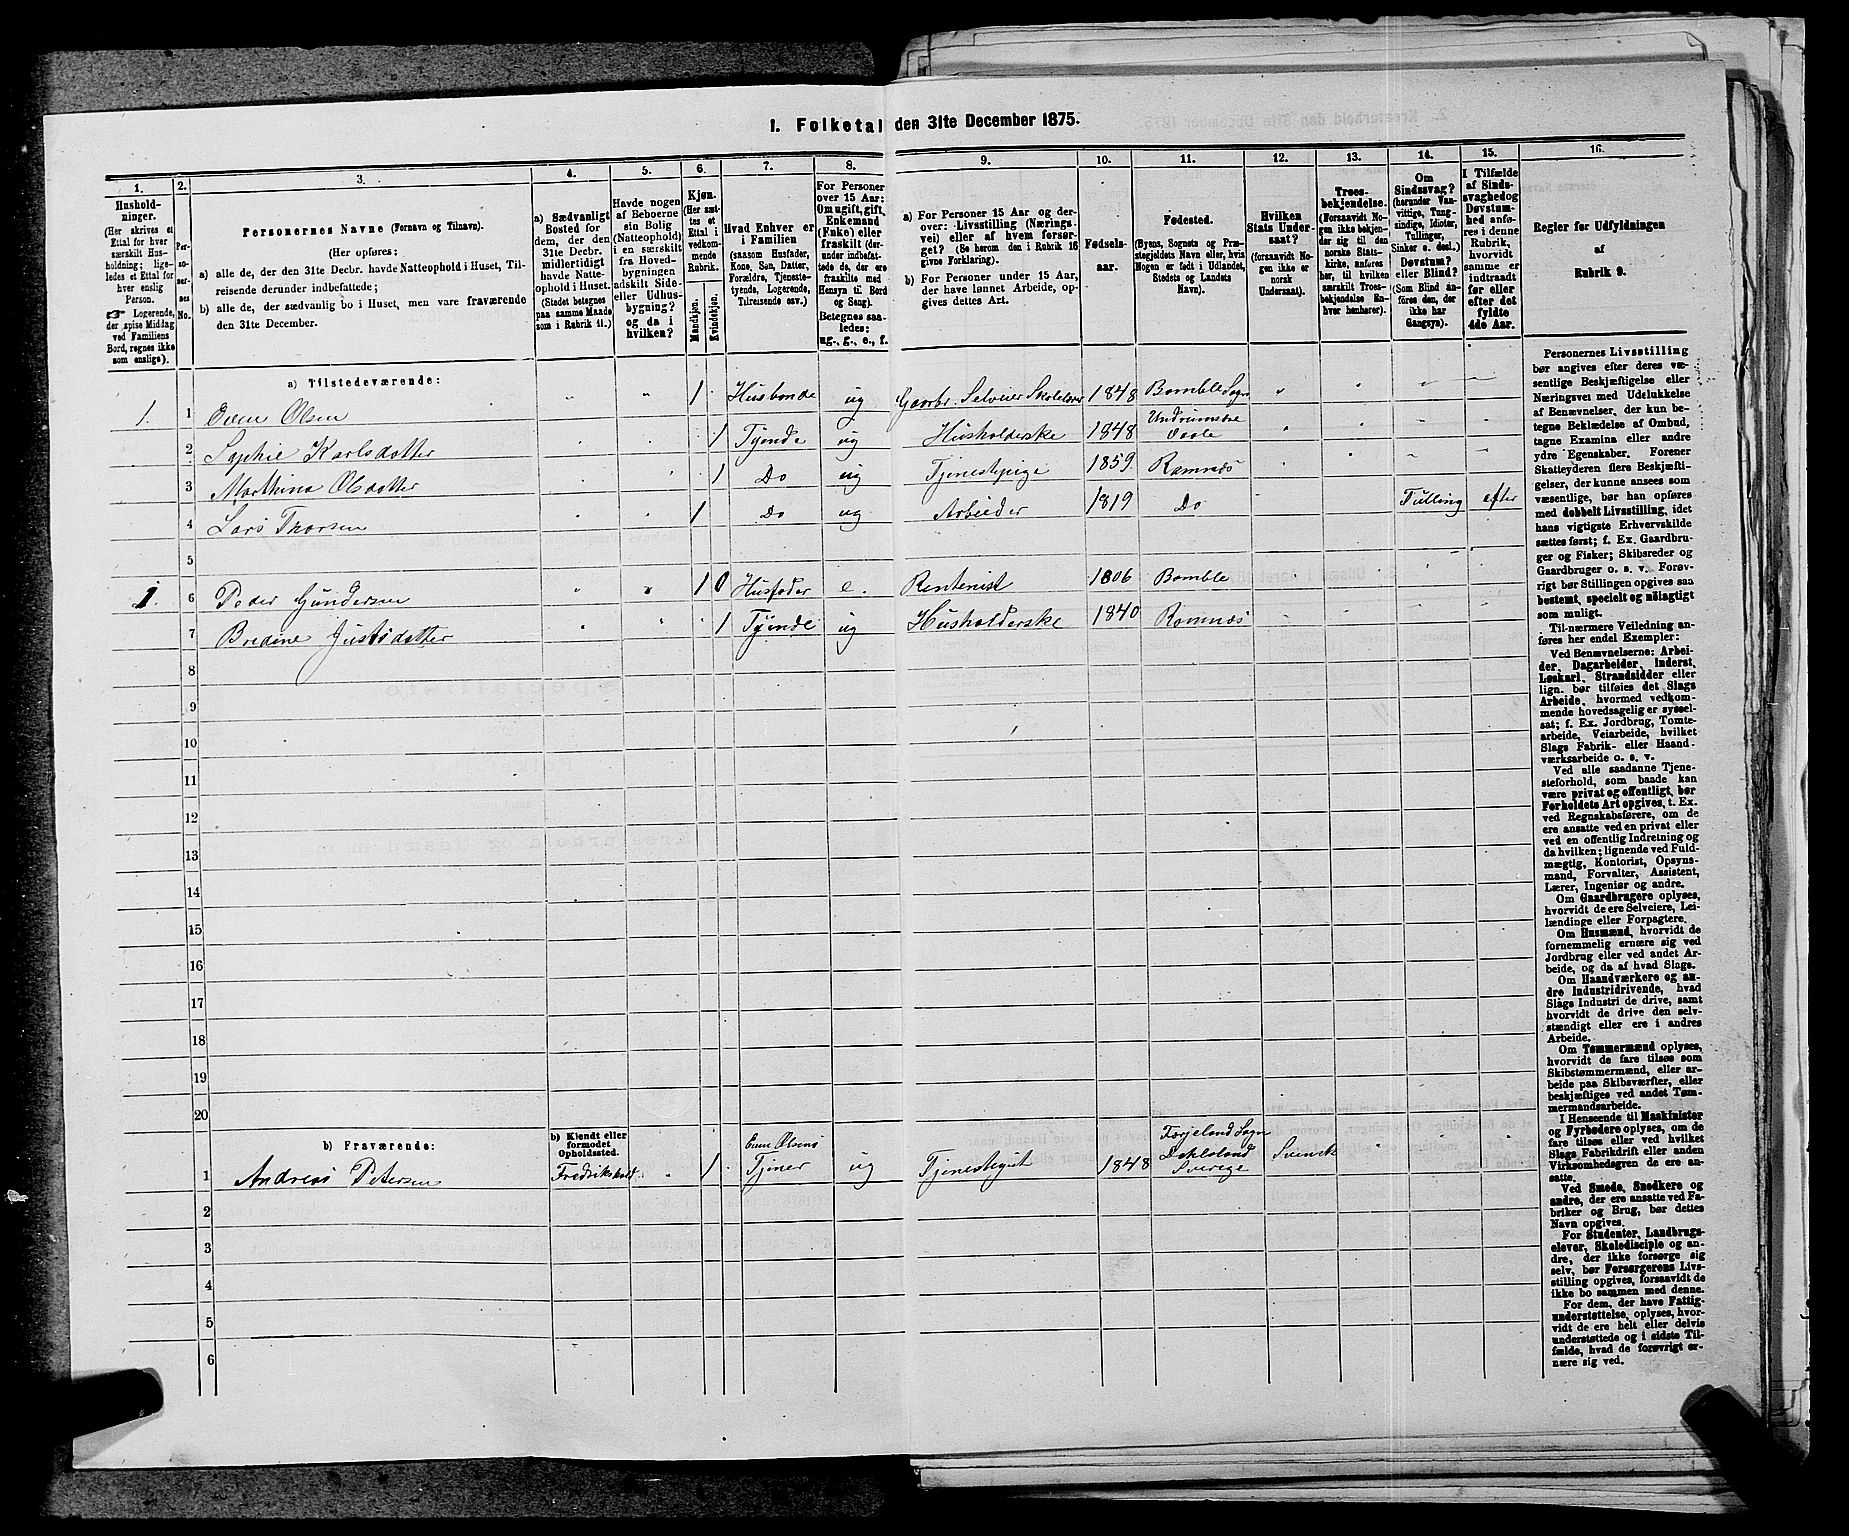 1. Folketal den 31te December 1875.
1.
Husholdninger.
(Her skrives et
Ettal for hver
særskilt Husholdning;
ligeledes et Ettal for
hver enslig
Person.
☞ Logerende,
der spise Middag
ved Familiens
Bord, regnes ikke
som enslige).
2.
Personernes No.
3.
Personernes Navne (Fornavn og Tilnavn).
(Her opføres:
a) alle de, der den 31te Decbr. havde Natteophold i Huset, Tilreisende derunder indbefattede;
b) alle de, der sædvanlig bo i Huset, men vare fraværende
den 31te December.
4.
a) Sædvanligt
Bosted for
dem, der den
31te Decbr.
midlertidigt
havde Natteophold i Huset.
(Stedet betegnes
paa samme Maade
som i Rubrik 11.)
5.
Havde nogen
af Beboerne
sin Bolig
(Natteophold)
i en særskilt
fra Hovedbygningen
adskilt Side-
eller Udhusbygning?
og da i
hvilken?
6.
Kjøn.
(Her sættes et
Ettal i
vedkommende
Rubrik.
Mandkjøn.
Kvindekjøn.
7.
Hvad Enhver er
i Familien
(saasom Husfader,
Kone, Søn, Datter,
Forældre, Tjenestetyende, Logerende,
Tilreisende osv.)
8.
For Personer
over 15 Aar:
Om ugift, gift,
Enkemand
(Enke) eller
fraskilt (derunder indbefattede de, der ere
fraskilte med
Hensyn til Bord
og Seng).
Betegnes saaledes:
ug., g., e., f.
9.
a) For Personer 15 Aar og derover: Livsstilling (Næringsvei) eller af hvem forsørget? (Se herom den i Rubrik 16
givne Forklaring).
b) For Personer under 15 Aar,
der have lønnet Arbeide, opgives dettes Art.
10.
Fødselsaar.
11.
Fødested.
(Byens, Sognets og Præstegjeldets Navn eller, hvis
Nogen er født i Udlandet,
Stedets og Landets
Navn).
12.
Hvilken
Stats Undersaat?
(forsaavidt Nogen ikke er
norsk
Undersaat).
13.
Troesbekjendelse.
(Forsaavidt Nogen ikke bekjender sig til
den norske Statskirke, anføres
her, til hvilken
særskilt Troesbekjendelse Enhver henhører).
14.
Om
Sindssvag?
(herunder Vanvittige, Tungsindige, Idioter,
Tullinger,
Sinker o. desl.)
Døvstum?
eller Blind?
(Som Blind anføres den, der
ikke har
Gangsyn).
15.
I Tilfælde
af Sindssvaghed og
Døvstumhed anføres i denne
Rubrik,
hvorvidt
samme er
indtraadt
før eller
efter det
fyldte
4de Aar.
16.
Regler for Udfyldningen
af
Rubrik 9.
a) Tilstedeværende:
1. 1 Even Olsen " " 1 Husbonde ug Gaardbr. Selveier Skolelærer 1848 Bamble Sogn "
2 Sophie Karlsdatter 1 Tjende ug Husholderske 1848 Undrumsdre
3 Marthine Olsdatter 1 Do ug Tjenestepige 1859 Ramnæs
4 Lars Thorsen 1 Do ug Arbeider 1819 Do Tulling efter
5
1. 6 Peder Gundersen 1 0 Husfader e. Rentenist 1806 Bamble
7 Bredine Justsdatter 1 Tjende ug Husholderske 1840 Ramnæs
8
9
10
11
12
13
14
15
16
17
18
19
20
b) Fraværende:
b) Kjendt eller
formodet
Opholdssted.
1 Andreas Petersen Fredrikshald 1 Even Olsens Tjener ug Tjenestegut 1848 Dahlsland Sverige Svensk
2
3
4
5
6
Personernes Livsstilling
bør angives efter deres væsentlige Beskjæftigelse eller
Næringsvei med Udelukkelse
af Benævnelser, der kun betegne Beklædelse af Ombud,
tagne Examina eller andre
ydre Egenskaber. Forener
Skatteyderen flere Beskjæftigelser, der kunne ansees som
væsentlige, bør han opføres
med dobbelt Livsstilling, idet
hans vigtigste Erhvervskilde
sættes først; f. Ex. Gaardbruger og Fisker; Skibsreder og
Gaardbruger o. s. v. Forøvrigt bør Stillingen opgives saa
bestemt, specielt og nøiagtigt
som muligt.
Til nærmere Veiledning anføres her endel Exempler:
Ved Benævnelserne: Arbeider, Dagarbeider, Inderst,
Løskarl, Strandsidder eller
lign. bør tilføies det Slags
Arbeide, hvormed vedkommende hovedsagelig er sysselsat; f. Ex. Jordbrug, Tomtearbeide, Veiarbeide, hvilket
Slags Fabrik- eller Haandværksarbeide o. s. v.
Ved alle saadanne Tjenesteforhold, som baade kan
være privat og offentligt, bør
Forholdets Art opgives, t. Ex.
ved Regnskabsførere, om de
ere ansatte ved en privat eller
ved en offentlig Indretning og
da hvilken; lignende ved Fuldmægtig, Kontorist, Opsynsmand, Forvalter, Assistent,
Lærer, Ingeniør og andre.
Om Gaardbrugere oplyses,
hvorvidt de ere Selveiere, Leilændinge eller Forpagtere.
Om Husmænd, hvorvidt de
fornemmelig ernære sig ved
Jordbrug eller ved andet Arbeide, og da af hvad Slags.
Om Haandværkere og andre Industridrivende, hvad
Slags Industri de drive, samt
hvorvidt de drive den selvstændigt eller ere i andres
Arbeide.
Om Tømmermænd oplyses,
hvorvidt de fare tilsøs som
Skibstømmermænd, eller arbeide paa Skibsværfter, eller
beskjæftiges ved andet Tømmermandsarbeide.
I Henseende til Maskinister
og Fyrbødere oplyses, om de
fare tilsøs eller ved hvilket
Slags Fabrikdrift eller anden
Virksomhedsgren de ere ansatte.
Ved Smede, Snedkere og
andre, der ere ansatte ved Fabriker og Brug, bør dettes
Navn opgives.
For Studenter, Landbrugselever, Skoledisciple og andre, der ikke forsørge sig
selv, bør Forsørgerens Livsstilling opgives, forsaavidt de
ikke bo sammen med denne.
For dem, der have Fattigunderstøttelse, oplyses, hvorvidt de ere helt eller delvis
understøttede og i sidste Tilfælde, hvad de forøvrigt ernære sig ved.